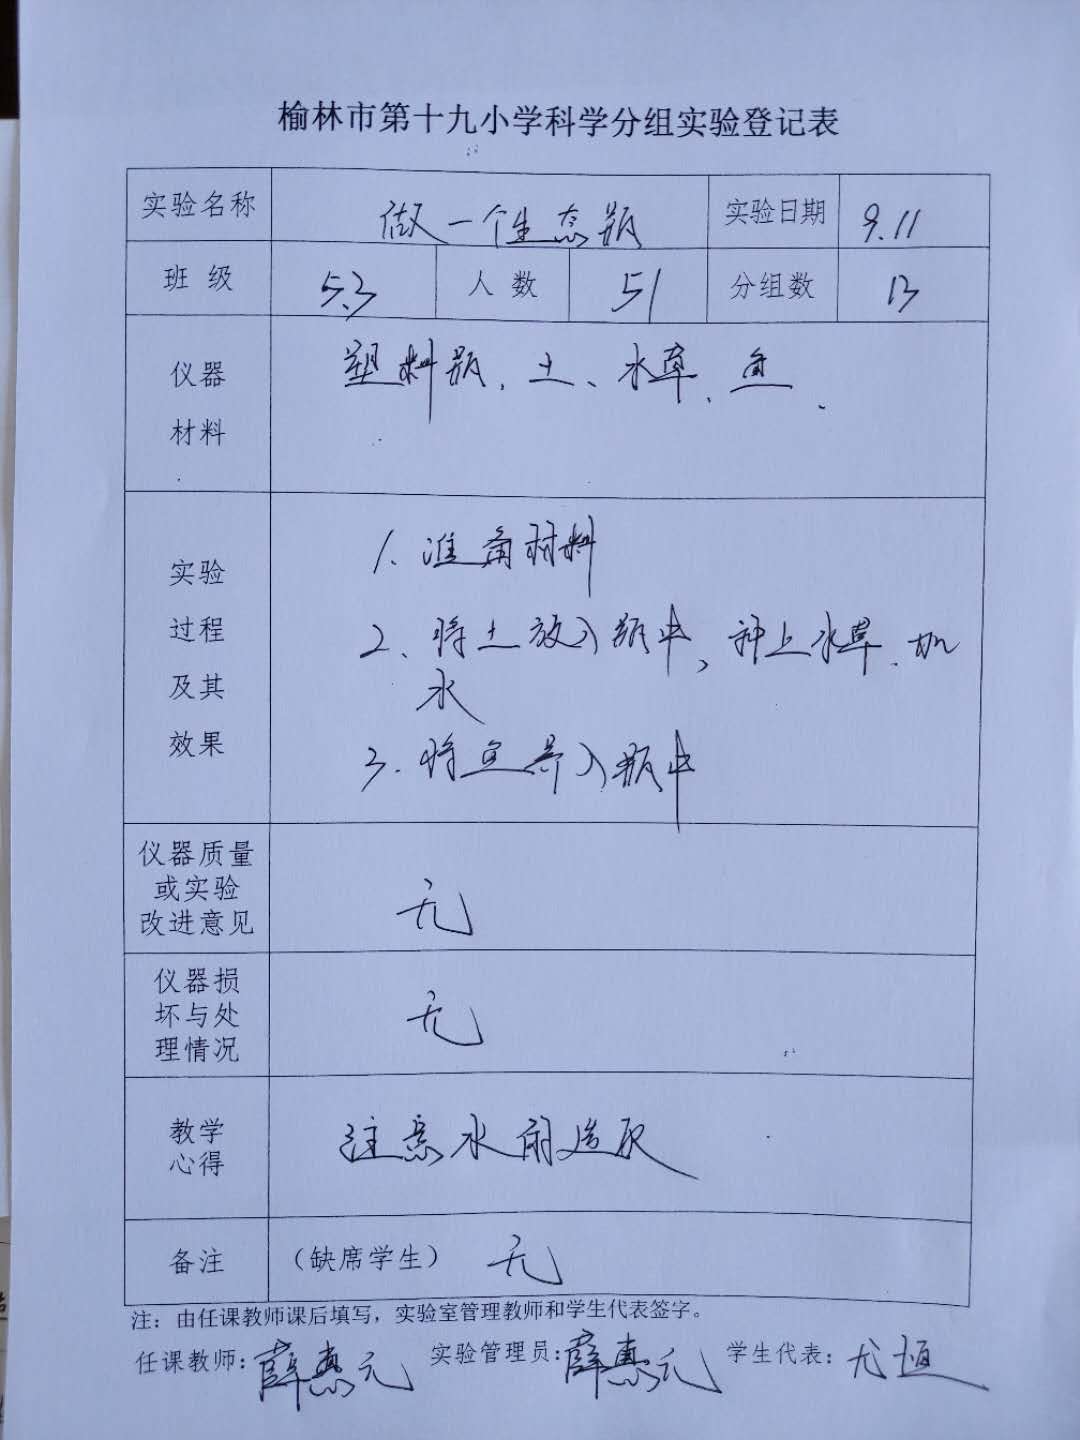 榆林市第十九小学科学分组实验登记表
实验名称 做一个生态瓶 实验日期 9.11
班 级 5.3 人 数 51 分组数 13
仪器
材料
塑料瓶、土、水草、鱼.
实验
过程
及其
效果
1. 准备材料
2、将土放入瓶中,种上水草、加
水
3. 将鱼养入瓶中
仪器质量
或实验
改进意见
无
仪器损
坏与处
理情况
无
教学
心得
注意水的
备注 (缺席学生) 无
注:由任课教师课后填写,实验室管理教师和学生代表签字。
任课教师:薛惠元 实验管理员:薛惠元 学生代表:尤